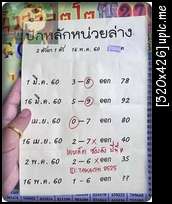 ปักหลักหน่วยล่าง
2 ตัวมา 1 ตัว 16 พ.ค. 60
1 มี.ค. 60 3 - 8 ออก 78
16 มี.ค. 60 5 - 9 ออก 92
1 เม.ย. 60 0 - 7 ออก 80
16 เม.ย. 60 2 - 7 x ออก 40
2 พ.ค. 60 2 - 6 x ออก 35
16 พ.ค. 60 1 - 6 ออก ??
[520x426]upic.me